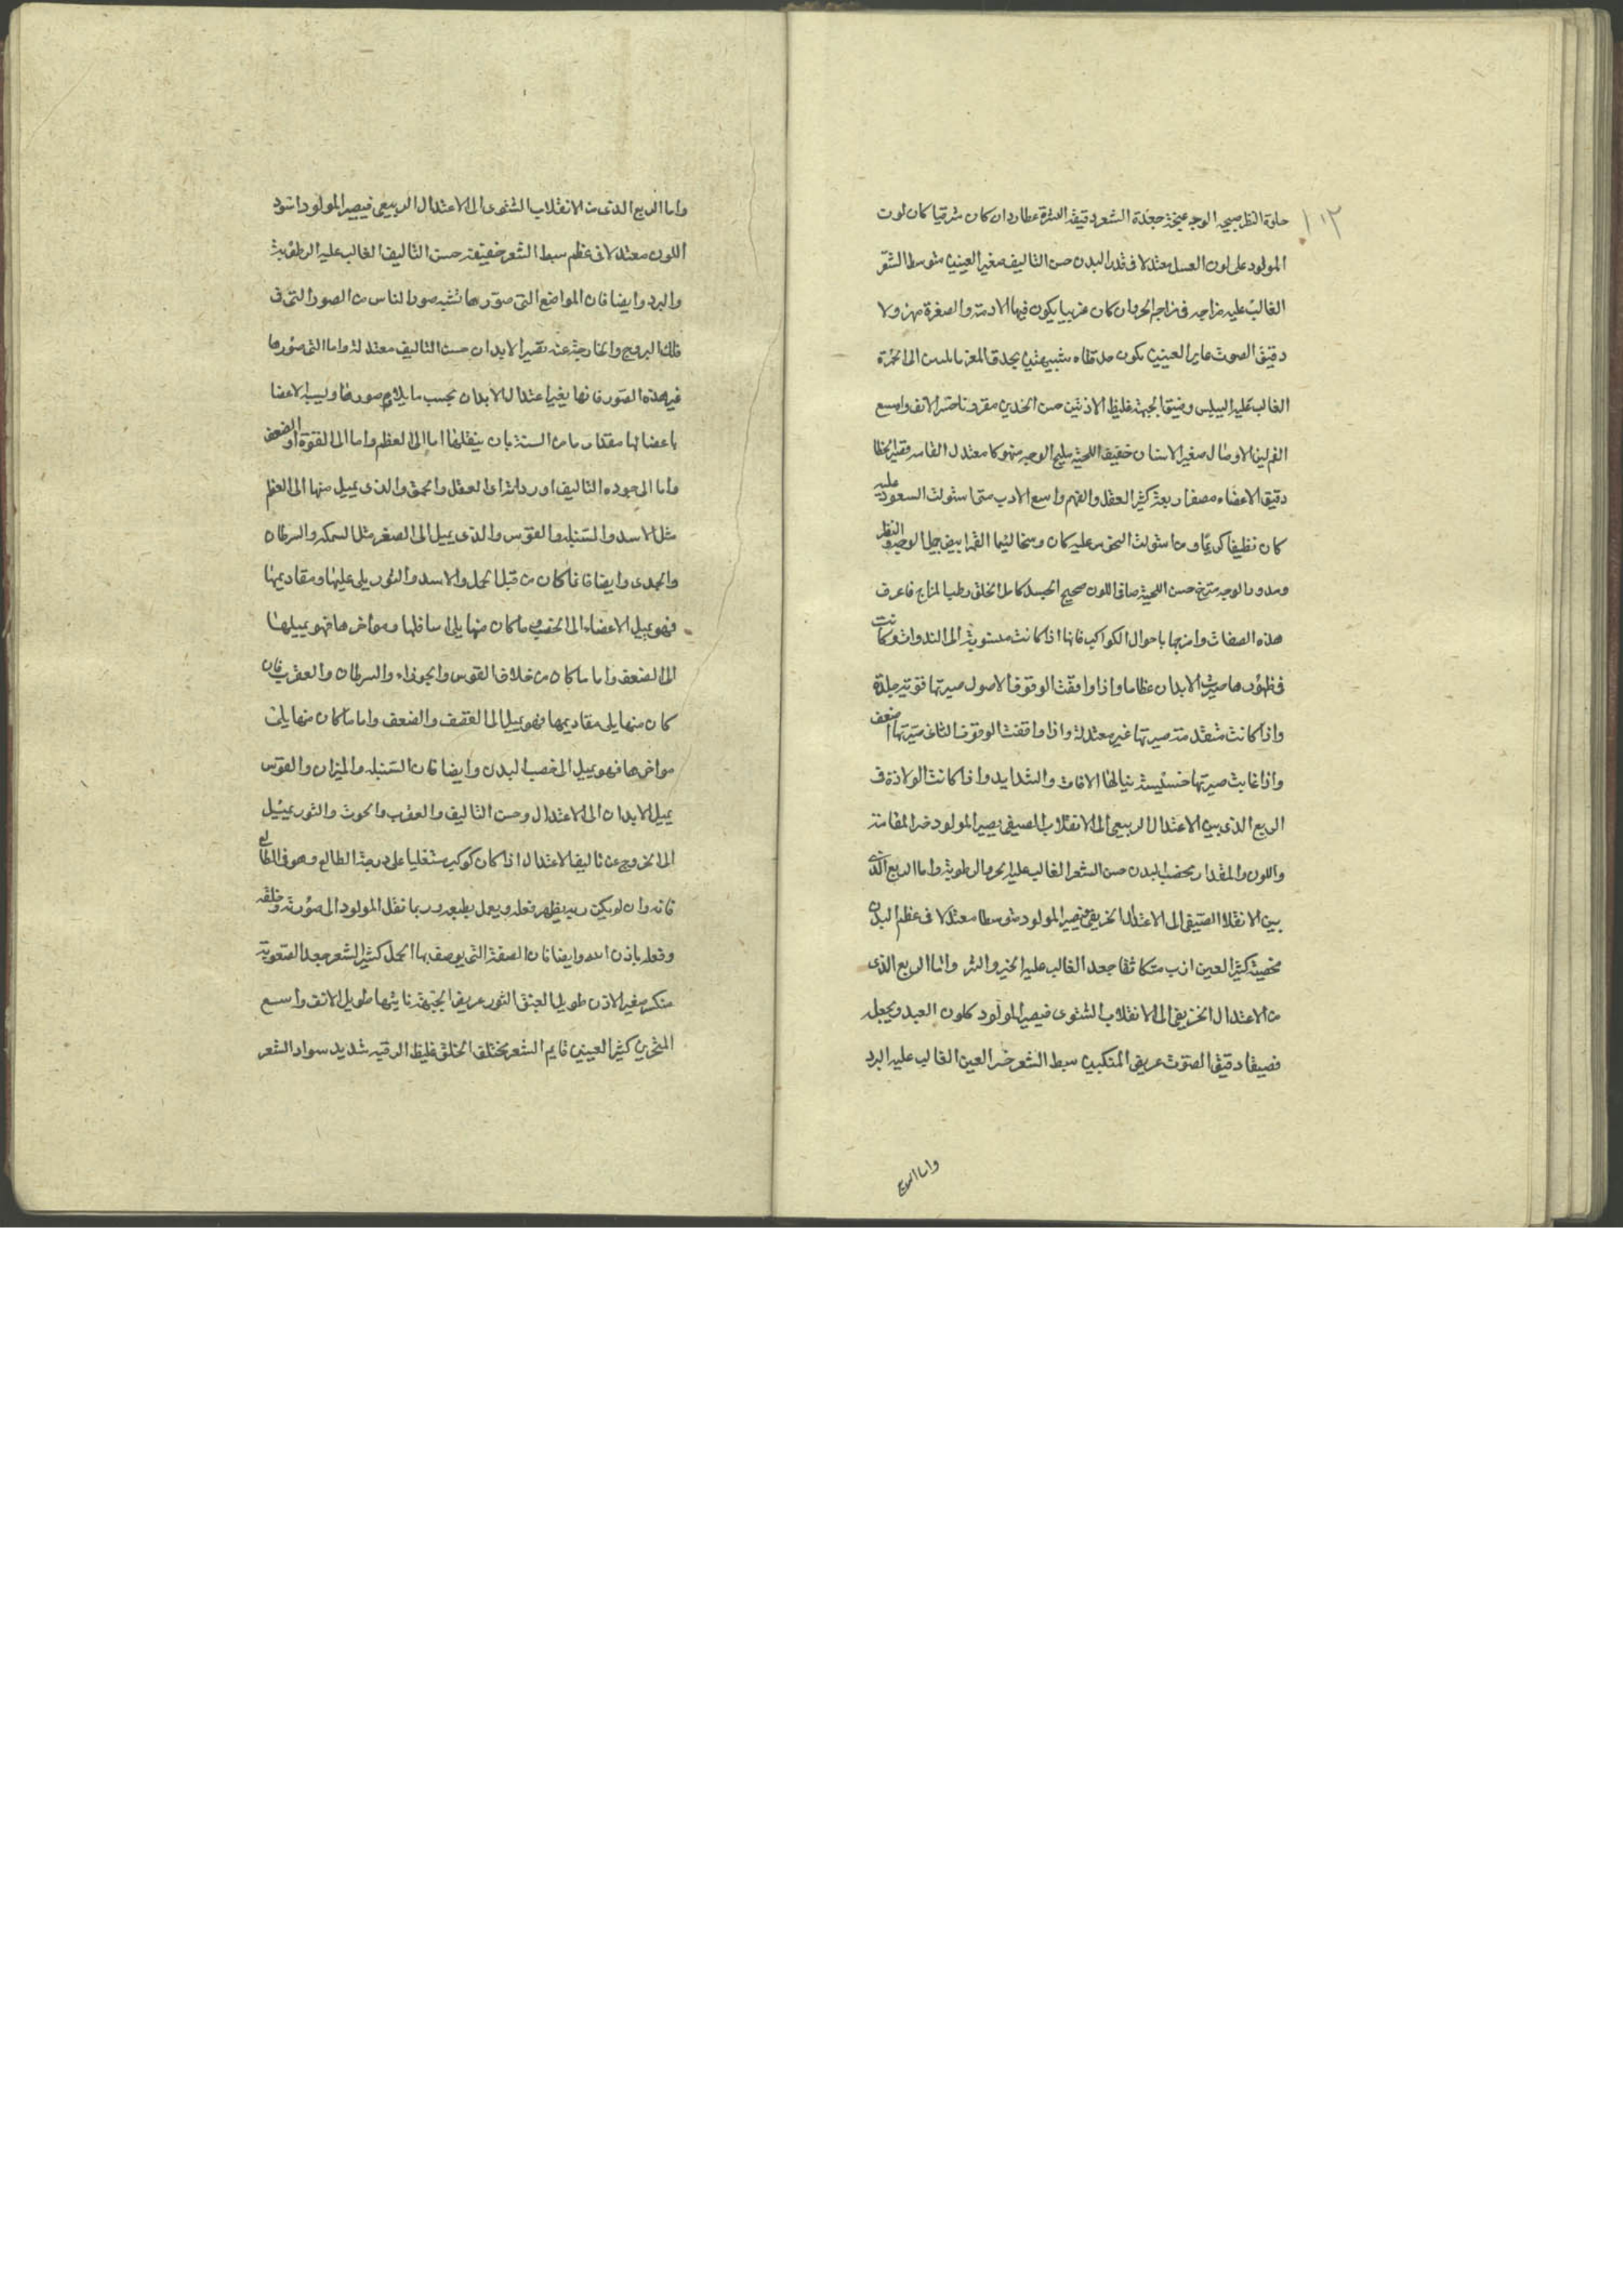 ١٠٢
حلوة النظر صبيحة الوجه جعدة الشعر دقيقة البشرة عطارد ان كان شرقيا كان لون
المولود على لون العسل معتدلا فى قدر البدن حسن التاليف صغير العينين متوسط الشعر
الغالب عليه مزاجه فى مزاج الحر وان كان غربيا يكون فيها الادمة والصفرة مهزولا
دقيق الصوت غاير العينين يكون حدقتاه شبيهتين بحدق المعز الى الحمرة
الغالب عليه اليبس وضيق الجبهة غليظ الاذنين حسن الخدين مقرون ناصر الانف واسع
الفم لين الاوصال صغير الاسنان خفيف اللحية مليح الوجه منهوكا معتدل القامه
دقيق الاعضاء مصفار بعة كثير العقل والفهم واسع الادب متى استولت السعود عليه
كان نظيفا كريما ومن استولت النحوس عليه كان وسخا لئيما القمر ابيض جميل الوجه والنظر
ومدور الوجه حسن اللحية صافى اللون صحيح الجسد كامل الخلق رطب المزاج فاعرف
هذه الصفات وامزجها باحوال الكواكب فانها اذا كانت مستوية الى الندوات وكانت
فى ظهورها صيرت الابدان عظاما واذا وافقت الوقوف الاول صيرتها قوتيه جلدة
واذا كانت متقدمة صيرتها غير معتدلة واذا وافقت الوقوف الثانى صيرتها اضعف
واذا غابت صيرتها خسيسة ينالها الافات والشدايد واذا كانت الولادة فى
الربع الذى بين الاعتدال الربيعى الى الانقلاب الصيفى يصير المولود حسن القامة
واللون والمقدار بخصب البدن حسن الشعر الغالب عليه الحر والرطوبة واما الربع الذى
بين الانقلاب الصيفى الى الاعتدال الخريفى فيصير المولود متوسطا معتدلا فى عظم البدن
كثير العين ازب متكاثفا جعد الغالب عليه الخير والشر واما الربع الذى
من الاعتدال الخريفى الى الانقلاب الشتوى فيصير المولود كلون العبد ويجعله
قصيفا دقيق الصوت عريض المنكبين سبط الشعر العين الغالب عليه البرد
واما الربع
واما الربع الذى من الانقلاب الشتوى الى الاعتدال الربيعى فيصير المولود اسود
اللون معتدلا فى عظم سبط الشعر خفيفته حسن التاليف الغالب عليه الرطوبة
والبرد وايضا فان المواضع التى صورها تشبه صور الناس من الصور التى فى
فلك البروج والخارجة عنه تصير الابدان حسنت التاليف معتدلة واما التى صورها
غير هذه الصور فانها يغير اعتدال الابدان بحسب ما يلايم صورها وليسير الاعضا
باعضائها مقدار ما من السنة بان ينقلها اما الى العظم واما الى القوة او الضعف
واما الى جوده التاليف او رداءته او العقل والحمق والذى يميل منها الى العظم
مثل الاسد والسنبله والقوس والذى يميل الى الصغر مثل السمكه والسرطان
والجدى وايضا فان ما كان من قبل الحمل والاسد والثور يلى عليها ومقاديمها
فهو يميل الاعضاء الى الخصب وما كان منها يلى اسافلها ومواخرها فهو يميلها
الى الضعف واما ما كان من خلاف القوس والجوزاء والسرطان والعقرب فان
كان منها يلى مقاديمها فهو يميل الى القضف والضعف واما ما كان منها يلى
مواخرها فهو يميل الى خصب البدن وايضا فان السنبله والميزان والقوس
يميل الابدان الى الاعتدال وحسن التاليف والعقرب والحوت والثور يميل
الى الخروج عن تاليف الاعتدال اذا كان كوكب مستعليا على درجة الطالع وهو فى الطالع
فانه وان لم يكن ربه يظهر فعله ويعمل بطبعه وربما نقل المولود الى صورته وخلقه
وفعله باذن الله وايضا فان الصفة التى يوصف بها الحمل كثير الشعر جعد الصعوبة
منكر صغير الاذن طويل العنق الثور عريض الجبهة ناتيها طويل الانف واسع
المنخرين كثير العينين قايم الشعر مختلف الخلق غليظ الرقبه شديد سواد الشعر